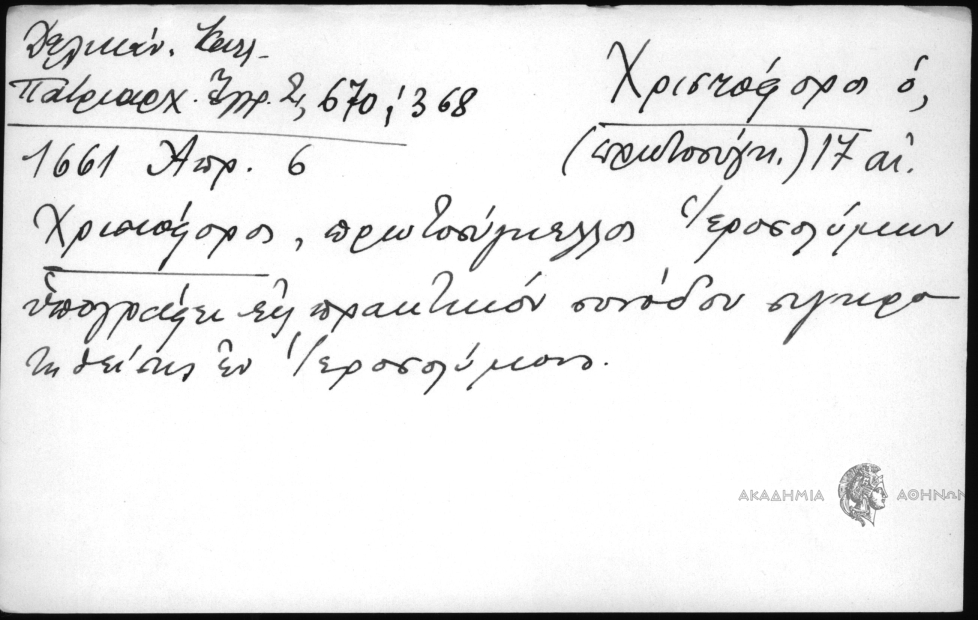 Δελικάν. Καλλ.
Πατριαρχ. Ἔγγρ. 2, 670, 368
Χριστόφορος ὁ,
(πρωτοσύγκ.) 17 αἰ.
1661 Ἀπρ. 6
Χριστόφορος, πρωτοσύγκελλος Ἱεροσολύμων
ὑπογράφει εἰς πρακτικόν συνόδου συγκρο
τηθείσης ἐν Ἱεροσολύμοις.
ΑΚΑΔΗΜΙΑ ΑΘΗΝΩΝ